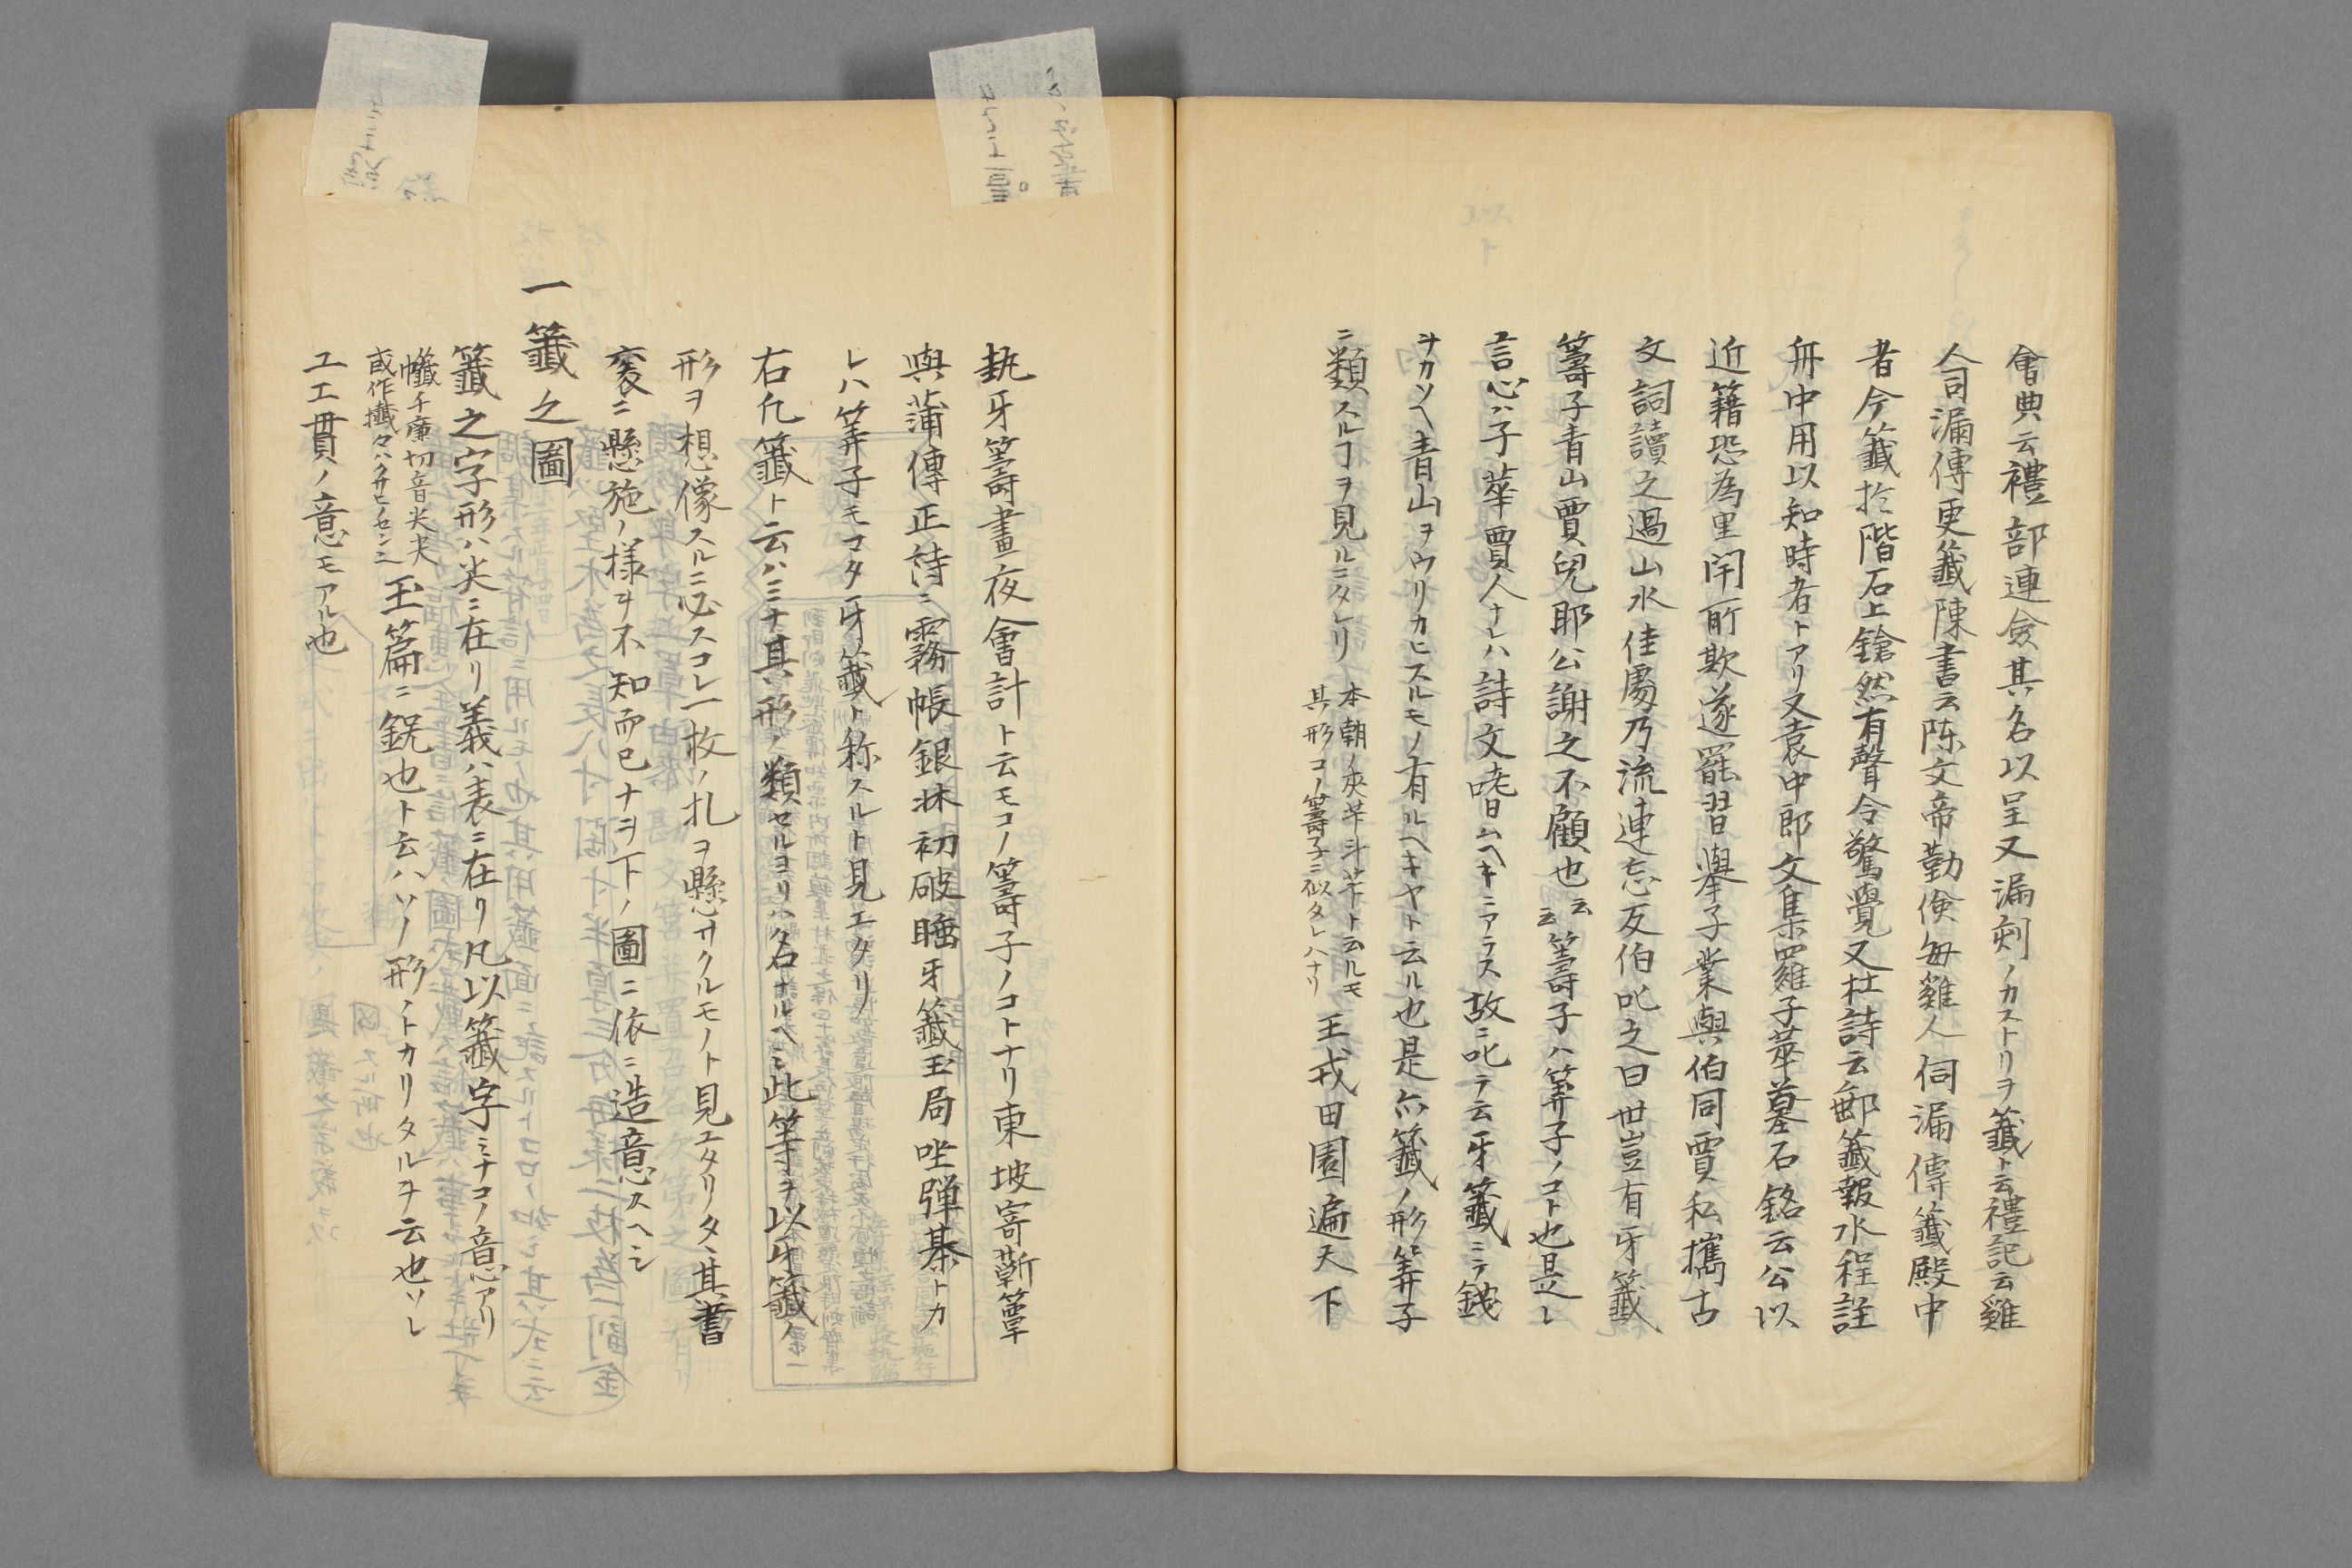 會典云禮部連僉其名以呈又漏刻ノカストリヲ籤ト云禮記云雞
人司漏傳更籤陳書云陳文帝勤儉每雞人伺漏傳籤殿中
者令籤於階石上鎗然有聲令驚覺又杜詩云郵籤報水程註
舟中用以知時者トアリ又袁中郎文集羅子華墓石銘云公以
近籍恐為里閈所欺遂罷習擧子業與伯同賈私攜古
文詞讀之過山水佳處乃流連忘反伯叱之曰世豈有牙籤
籌子青山賈兒耶公謝之不顧也云云籌子ハ筭子ノコト也是レ
言心ハ子華賈人ナレハ詩文嗜ムヘキニアラス故ニ叱テ云牙籤ニテ錢
ヲカソヘ青山ヲウリカヒスルモノ有ルヘキヤト云ル也是亦籤ノ形筭子
ニ類スルコヲ見ルニタレリ
本朝ノ夾芊斗芊ト云ルモ
其形コノ籌子ニ似タレハナリ
王戎田園遍天下
執牙籌晝夜會計ト云モコノ籌子ノコトナリ東坡寄蘄簟
與蒲傳正詩ニ霧帳銀牀初破睡牙籤玉局坐彈棊トカ
レハ筭子モマタ牙籤ト称スルト見エタリ
右凡籤ト云ハミナ其形ノ類セルヨリハ名ナルヘシ此等ヲ以牙籤ノ
形ヲ想像スルニ必スコレ一枚ノ札ヲ懸ケクルモノト見エタリタヽ其書
袠ニ懸施ノ様ヲ不知而已ナヲ下ノ圖ニ依ニ造意スヘシ
一籤之圖
籤之字形ハ尖ニ在リ義ハ表ニ在リ凡以籤字ミナコノ意アリ
幟千廉切音尖尖
或作攕々ハ
玉篇ニ銳也ト云ハソノ形ノトカリタルヲ云也ソレ
ユエ貫ノ意モアル也